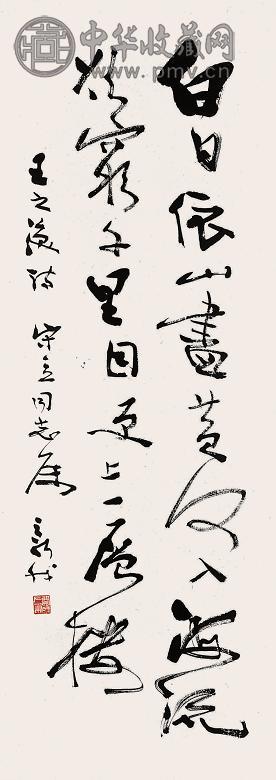 中华收藏网
www.pmv.cn
白日依山盡黄河入海流
欲窮千里目更上一层樓
王之渙诗 同志属